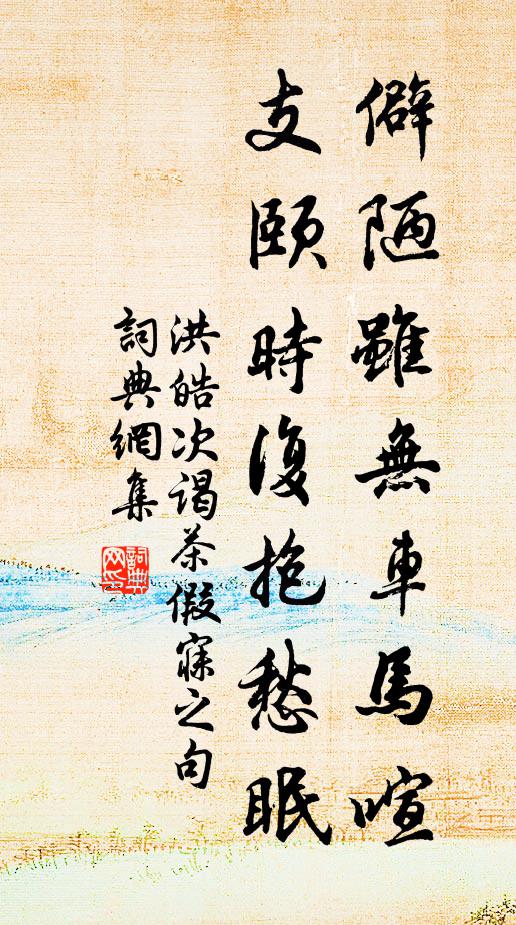 僻陋雖無車馬喧
支頤時復抱愁眠
洪皓次谒茶假寐之句
詞典網集
詞典网印